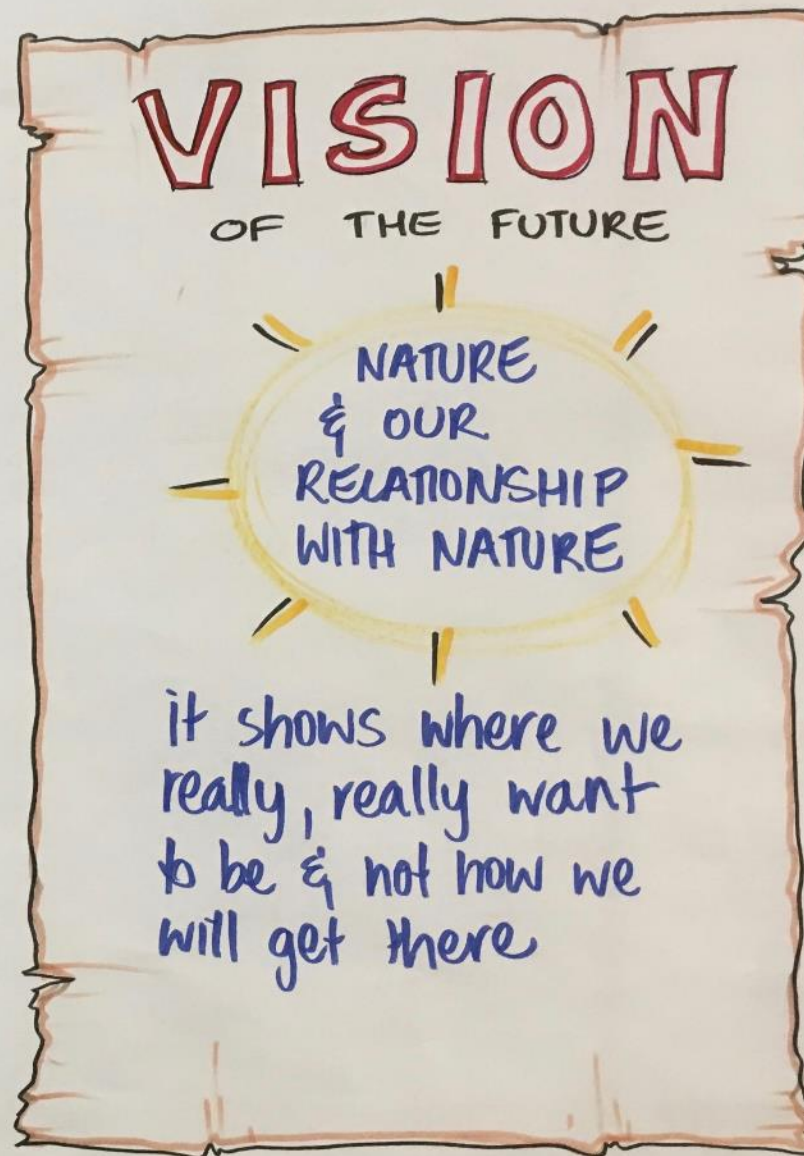 VISION
OF THE FUTURE
NATURE
& OUR
RELATIONSHIP
WITH NATURE
it shows where we
really, really want
to be & not how we
will get there